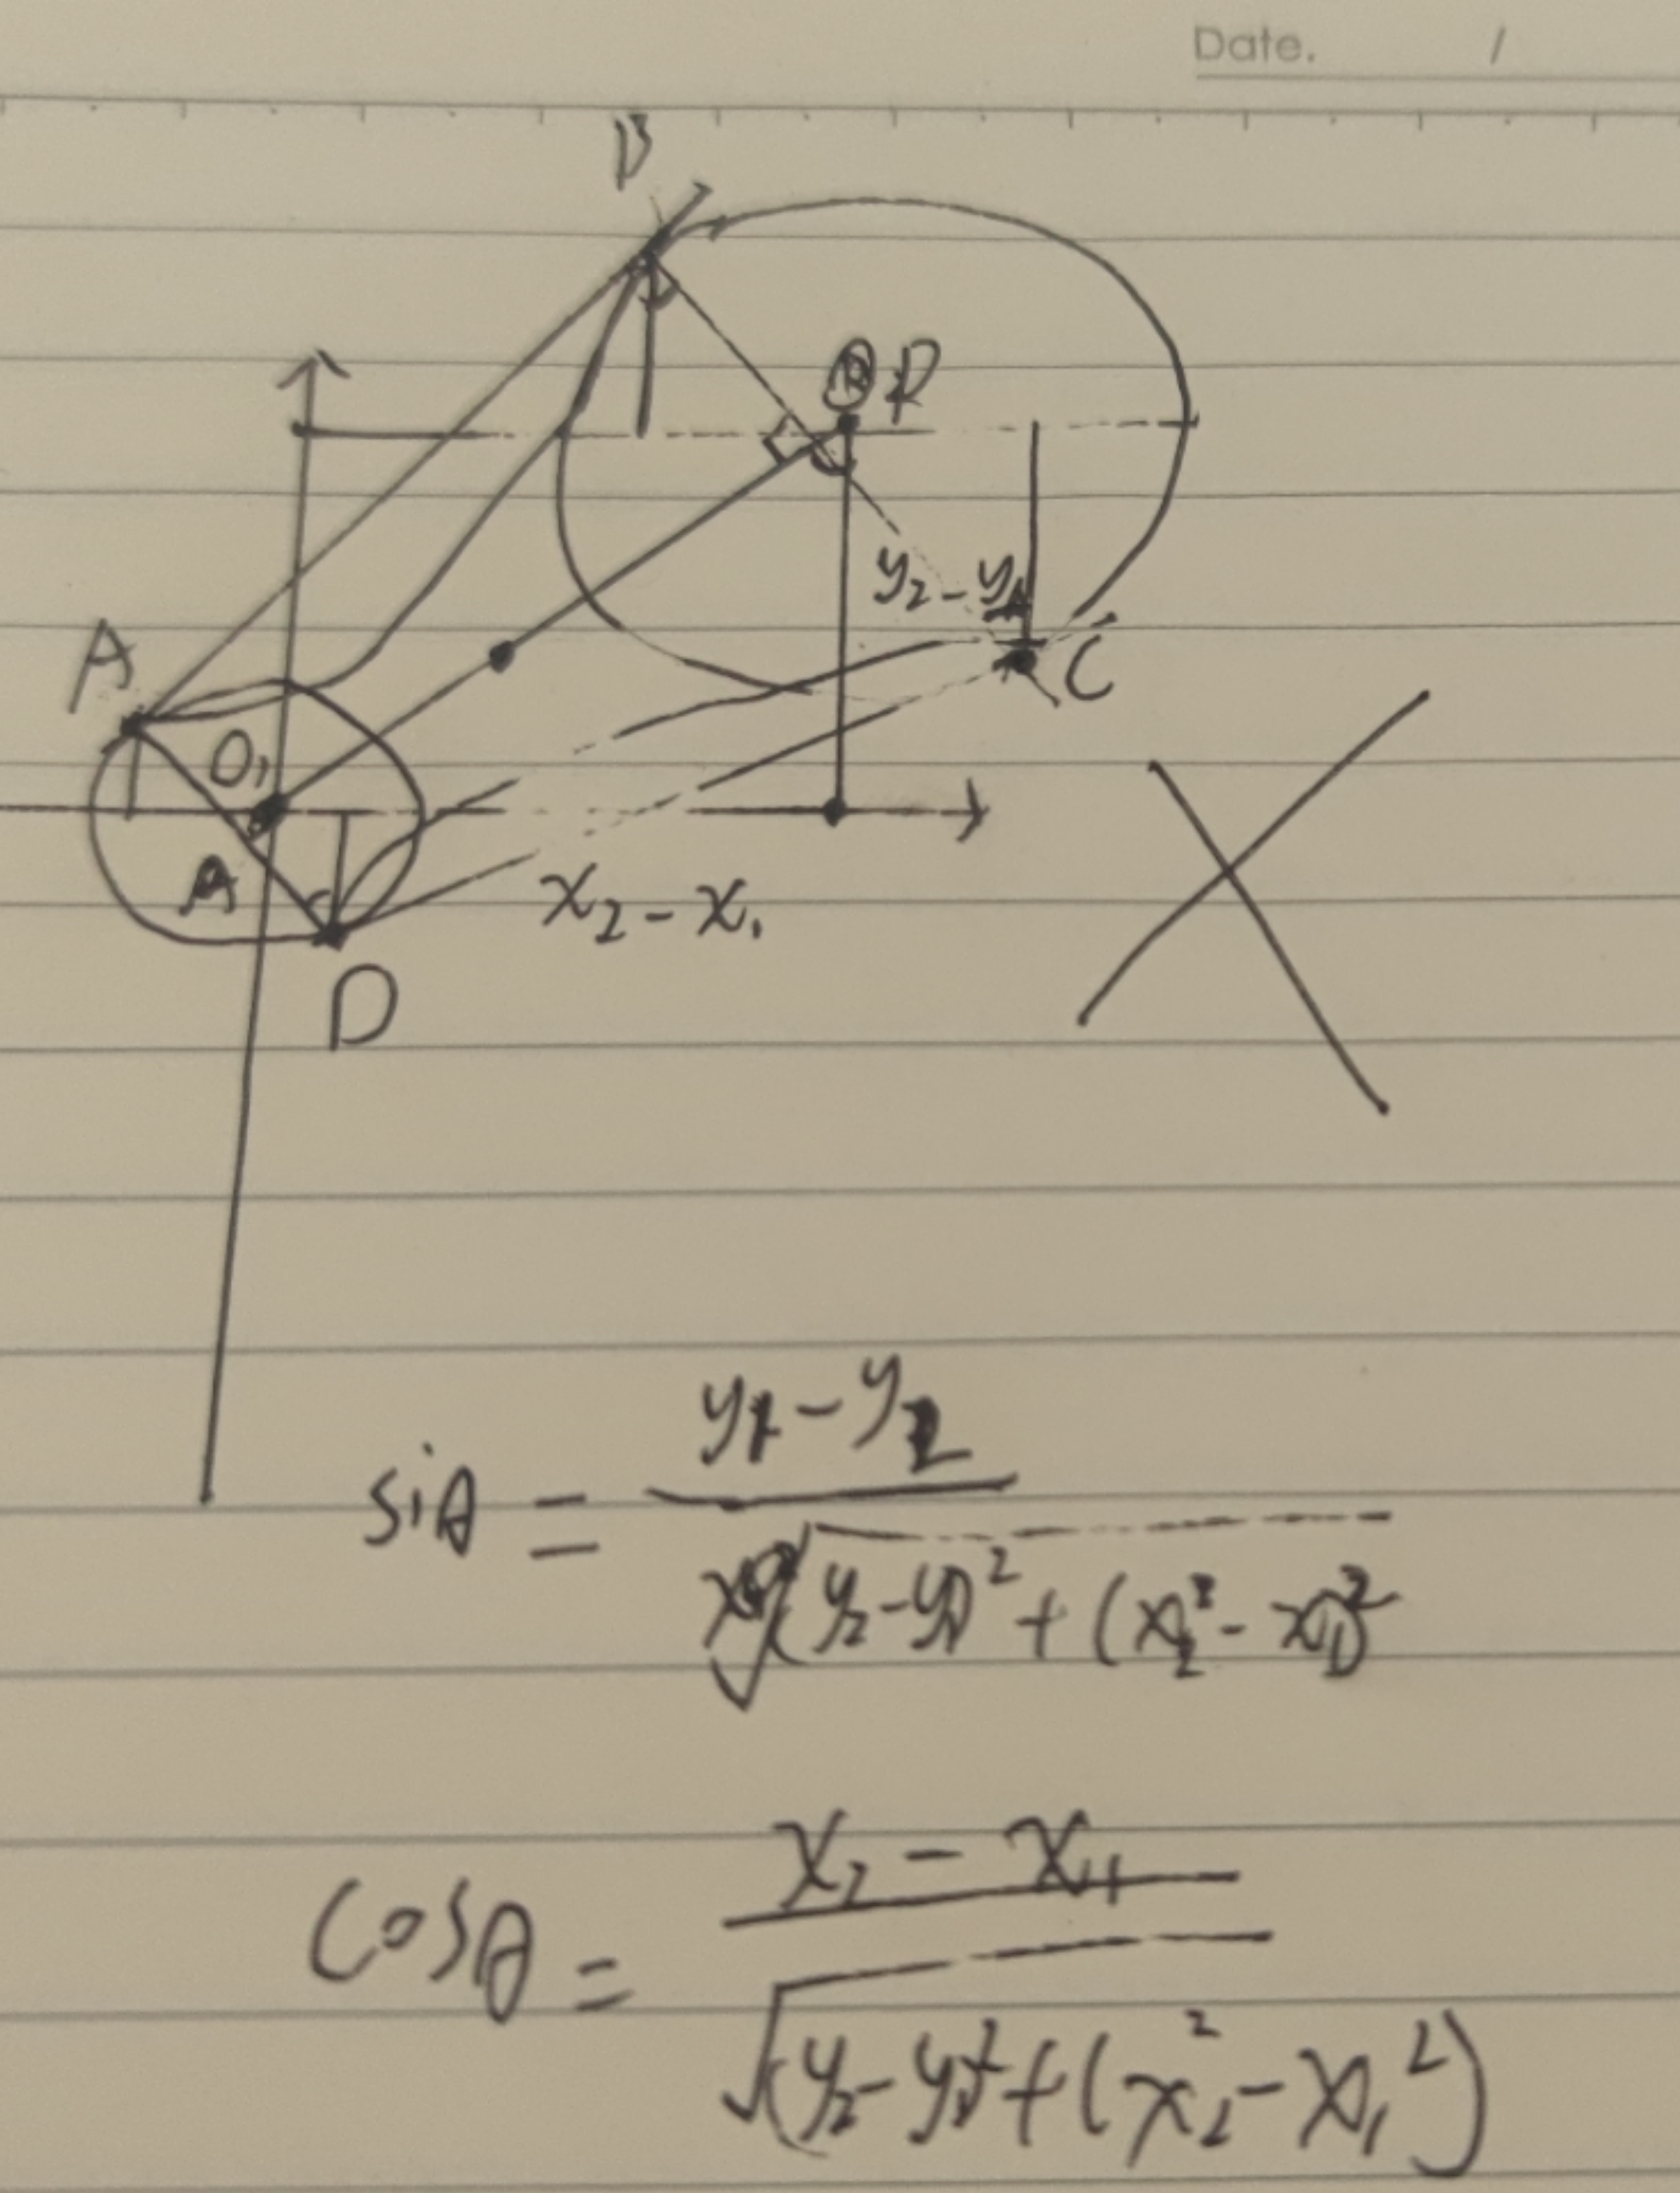 Date. /
B
R
y₂ - y₁
A
C
O₁
A
x₂ - x₁
D
siθ = y₁ - y₂
√(y₂ - y₁)² + (x₂² - x₁)²
cosθ = x₂ - x₁
√(y₂ - y₁)² + (x₂² - x₁²)